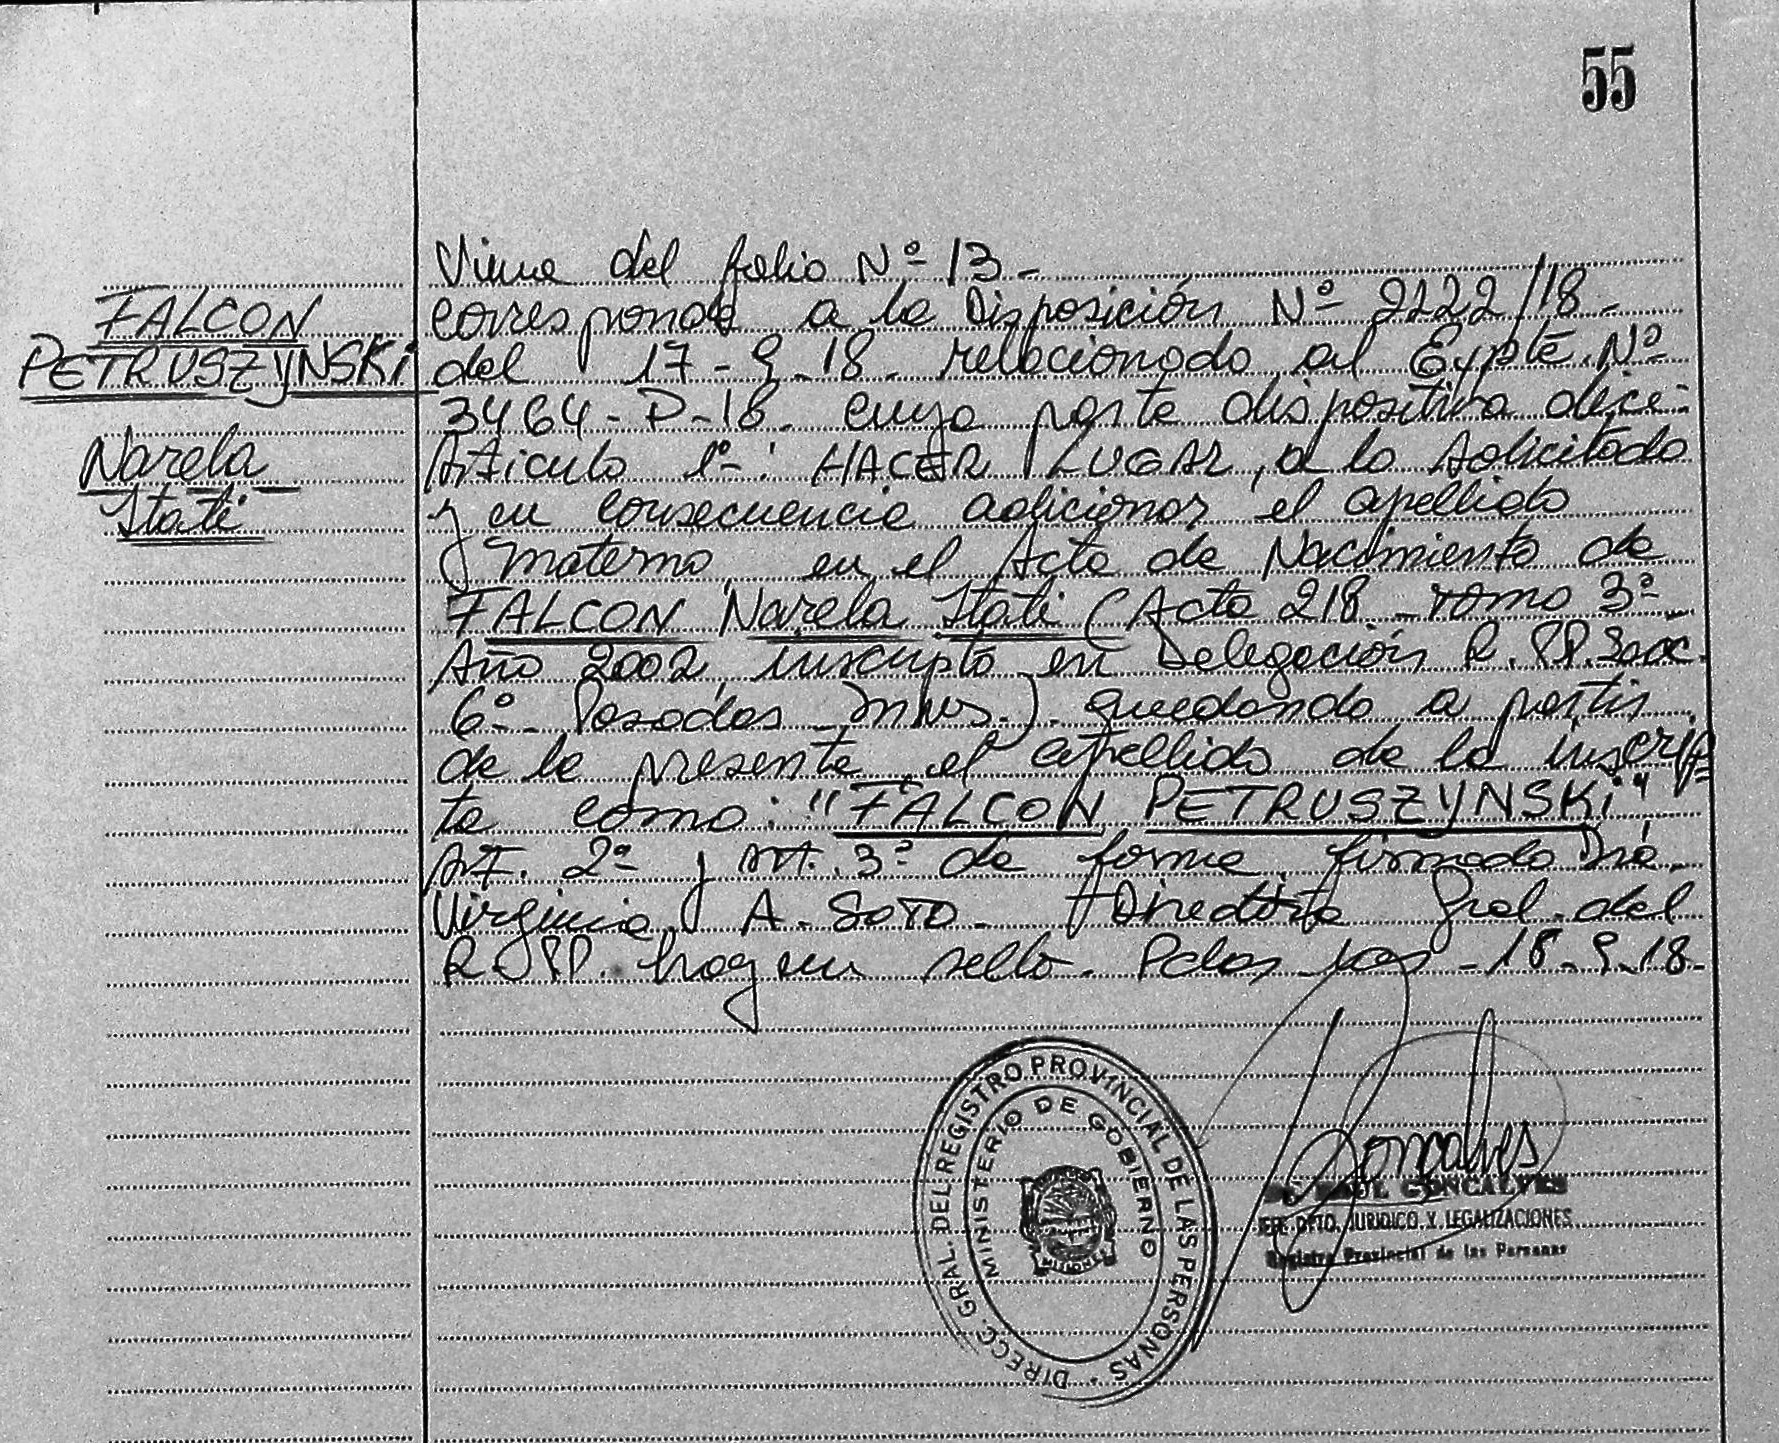 55
FALCON
PETRUSZYNSKI
Narela
Itati
Viene del folio Nº 13-
corresponde a la Disposición Nº 2122/18-
del 17-9-18- relacionado al Expte. Nº
3464-P-18- cuya parte dispositiva dice:
Articulo 1º-: HACER LUGAR, a lo solicitado
y en consecuencia adicionar el apellido
materno en el Acta de Nacimiento de
FALCON Narela Itati (Acta 218- Tomo 3º-
Año 2002, inscripta en Delegación R.PP.
6º- Posadas Mnes.). quedando a partir
de la presente, el apellido de la inscrip
ta como: "FALCON PETRUSZYNSKI"
Art. 2º y Art. 3º de forma, firmado Dra.
Virginia A. Soto- Directora Gral. del
R.PP. hay un sello- Pdas 18-9-18-
DIRECC. GRAL. DEL REGISTRO PROVINCIAL DE LAS PERSONAS
MINISTERIO DE GOBIERNO
Goncalves
RAUL GONCALVES
JEFE DPTO. JURIDICO Y LEGALIZACIONES
Registro Provincial de las Personas